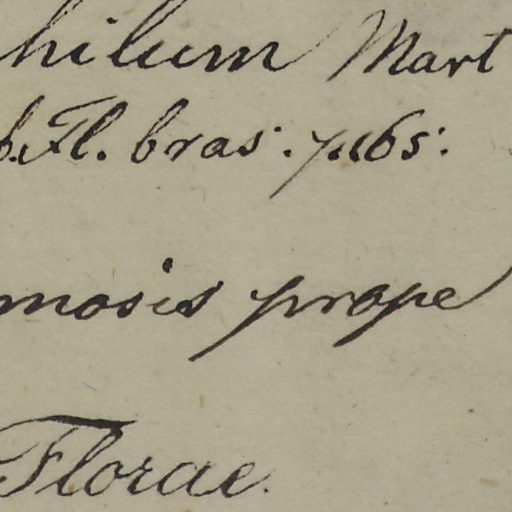 hilum Mart
b. Fl. bras. p. 165.
mosis prope
Florae.